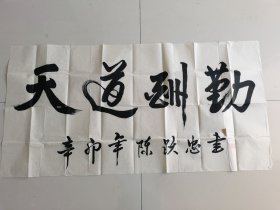 天道酬勤
辛卯年陈跃忠书